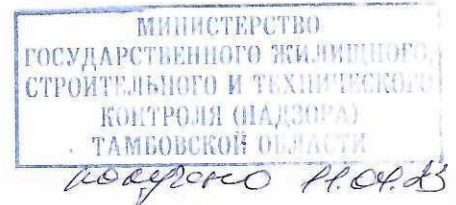 МИНИСТЕРСТВО
ГОСУДАРСТВЕННОГО ЖИЛИЩНОГО,
СТРОИТЕЛЬНОГО И ТЕХНИЧЕСКОГО
КОНТРОЛЯ (НАДЗОРА)
ТАМБОВСКОЙ ОБЛАСТИ
получено 11.04.23